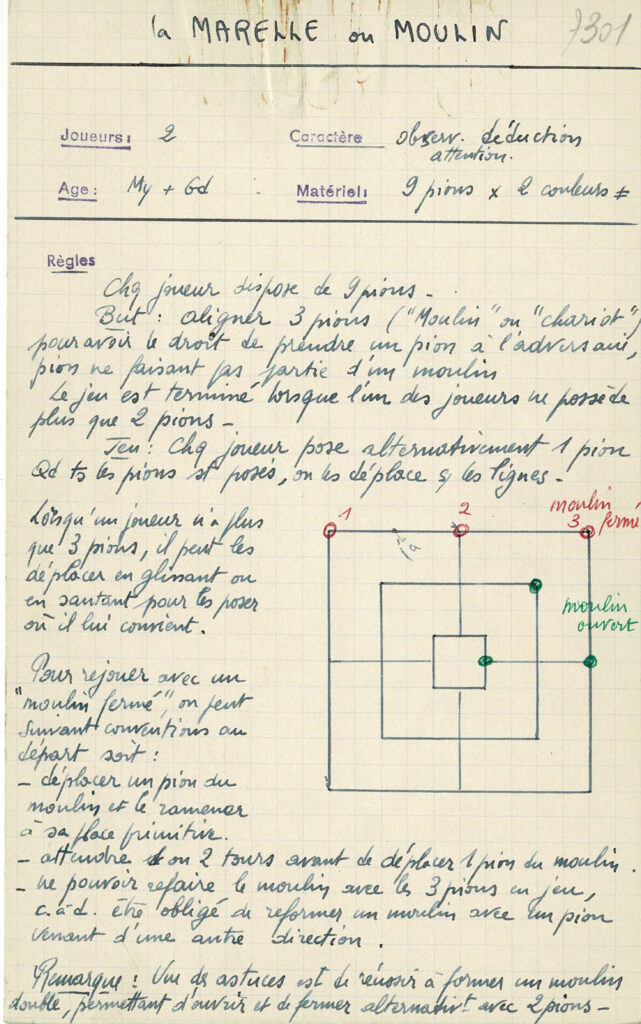 la MARELLE ou MOULIN
7301
Joueurs: 2
Caractère observ. déduction
attention.
Age: My + Gd
Matériel: 9 pions x 2 couleurs ≠
Règles
Chq joueur dispose de 9 pions -
But : aligner 3 pions ("Moulin" ou "chariot")
pour avoir le droit de prendre un pion à l'adversaire,
pion ne faisant pas partie d'un moulin
Le jeu est terminé lorsque l'un des joueurs ne possède
plus que 2 pions -
Jeu : Chq joueur pose alternativement 1 pion
Qd ts les pions st posés, on les déplace s/ les lignes -
Lorsqu'un joueur n'a plus
que 3 pions, il peut les
déplacer en glissant ou
en sautant pour les poser
où il lui convient.
1 2 3
moulin
fermé
moulin
ouvert
Pour rejouer avec un
"moulin fermé", on peut
suivant conventions au
départ soit :
- déplacer un pion du
moulin et le ramener
à sa place primitive.
- attendre 1 ou 2 tours avant de déplacer 1 pion du moulin.
- ne pouvoir refaire le moulin avec les 3 pions en jeu,
c.à.d. être obligé de reformer un moulin avec un pion
venant d'une autre direction.
Remarque : Une des astuces est de réussir à former un moulin
double, permettant d'ouvrir et de fermer alternativt avec 2 pions -